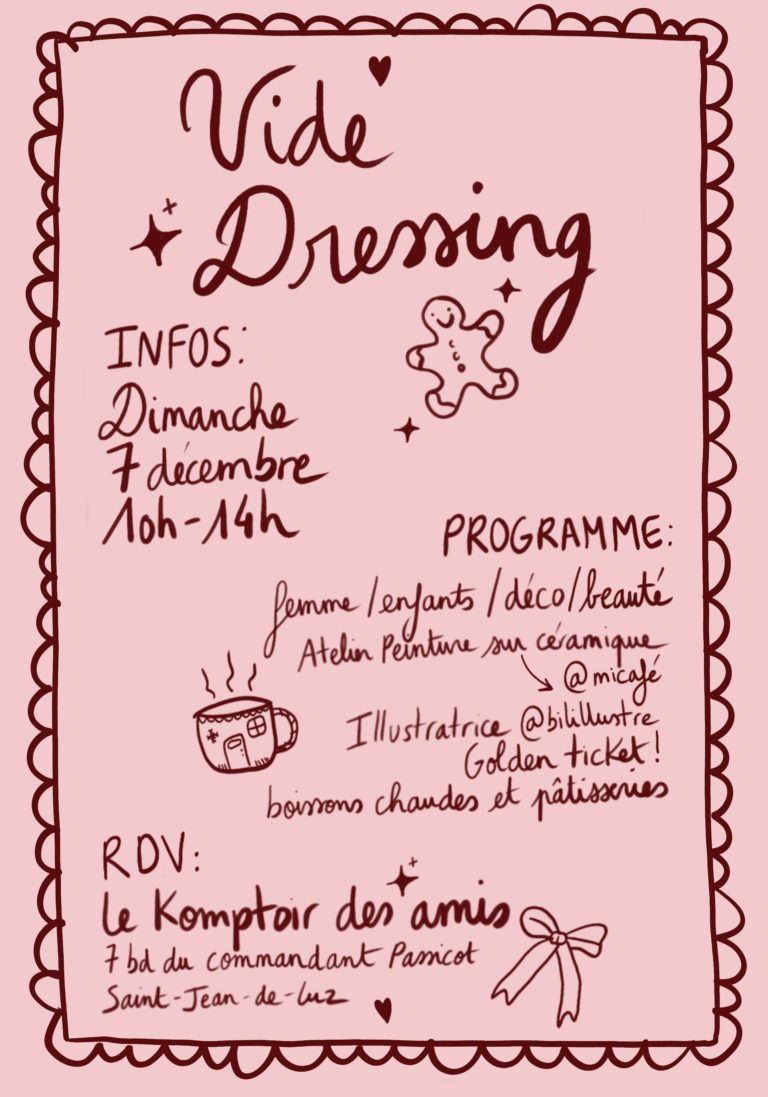 Vide
Dressing
INFOS:
Dimanche
7 décembre
10h-14h
PROGRAMME:
femme/enfants/déco/beauté
Atelier Peinture sur céramique
@micafé
Illustratrice @bilillustre
Golden ticket!
boissons chaudes et pâtisseries
RDV:
Le Komptoir des amis
7 bd du commandant Passicot
Saint-Jean-de-Luz